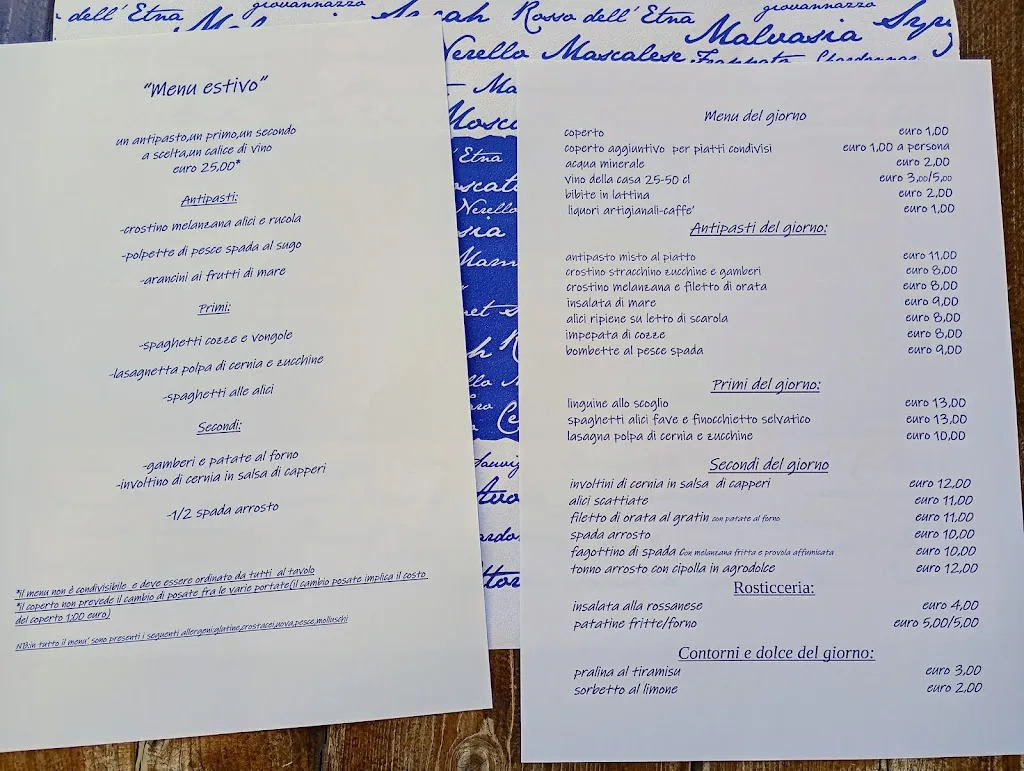 dell'Etna
giovannazzo
Syrah
Rosso dell'Etna
giovannazzo
Malvasia
Nerello Mascalese
"Menu estivo"
un antipasto,un primo,un secondo
a scelta,un calice di vino
euro 25,00*
Antipasti:
-crostino melanzana alici e rucola
-polpette di pesce spada al sugo
-arancini ai frutti di mare
Primi:
-spaghetti cozze e vongole
-lasagnetta polpa di cernia e zucchine
-spaghetti alle alici
Secondi:
-gamberi e patate al forno
-involtino di cernia in salsa di capperi
-1/2 spada arrosto
*il menu non è condivisibile e deve essere ordinato da tutti al tavolo
*il coperto non prevede il cambio di posate fra le varie portate(il cambio posate implica il costo
del coperto 1,00 euro)
NB:in tutto il menu' sono presenti i seguenti allergeni:glutine,crostacei,uova,pesce,molluschi
Menu del giorno
coperto euro 1,00
coperto aggiuntivo per piatti condivisi euro 1,00 a persona
acqua minerale euro 2,00
vino della casa 25-50 cl euro 3,00/5,00
bibite in lattina euro 2,00
liquori artigianali-caffe' euro 1,00
Antipasti del giorno:
antipasto misto al piatto euro 11,00
crostino stracchino zucchine e gamberi euro 8,00
crostino melanzana e filetto di orata euro 8,00
insalata di mare euro 9,00
alici ripiene su letto di scarola euro 8,00
impepata di cozze euro 8,00
bombette al pesce spada euro 9,00
Primi del giorno:
linguine allo scoglio euro 13,00
spaghetti alici fave e finocchietto selvatico euro 13,00
lasagna polpa di cernia e zucchine euro 10,00
Secondi del giorno
involtini di cernia in salsa di capperi euro 12,00
alici scattiate euro 11,00
filetto di orata al gratin con patate al forno euro 11,00
spada arrosto euro 10,00
fagottino di spada Con melanzana fritta e provola affumicata euro 10,00
tonno arrosto con cipolla in agrodolce euro 12,00
Rosticceria:
insalata alla rossanese euro 4,00
patatine fritte/forno euro 5,00/5,00
Contorni e dolce del giorno:
pralina al tiramisu euro 3,00
sorbetto al limone euro 2,00